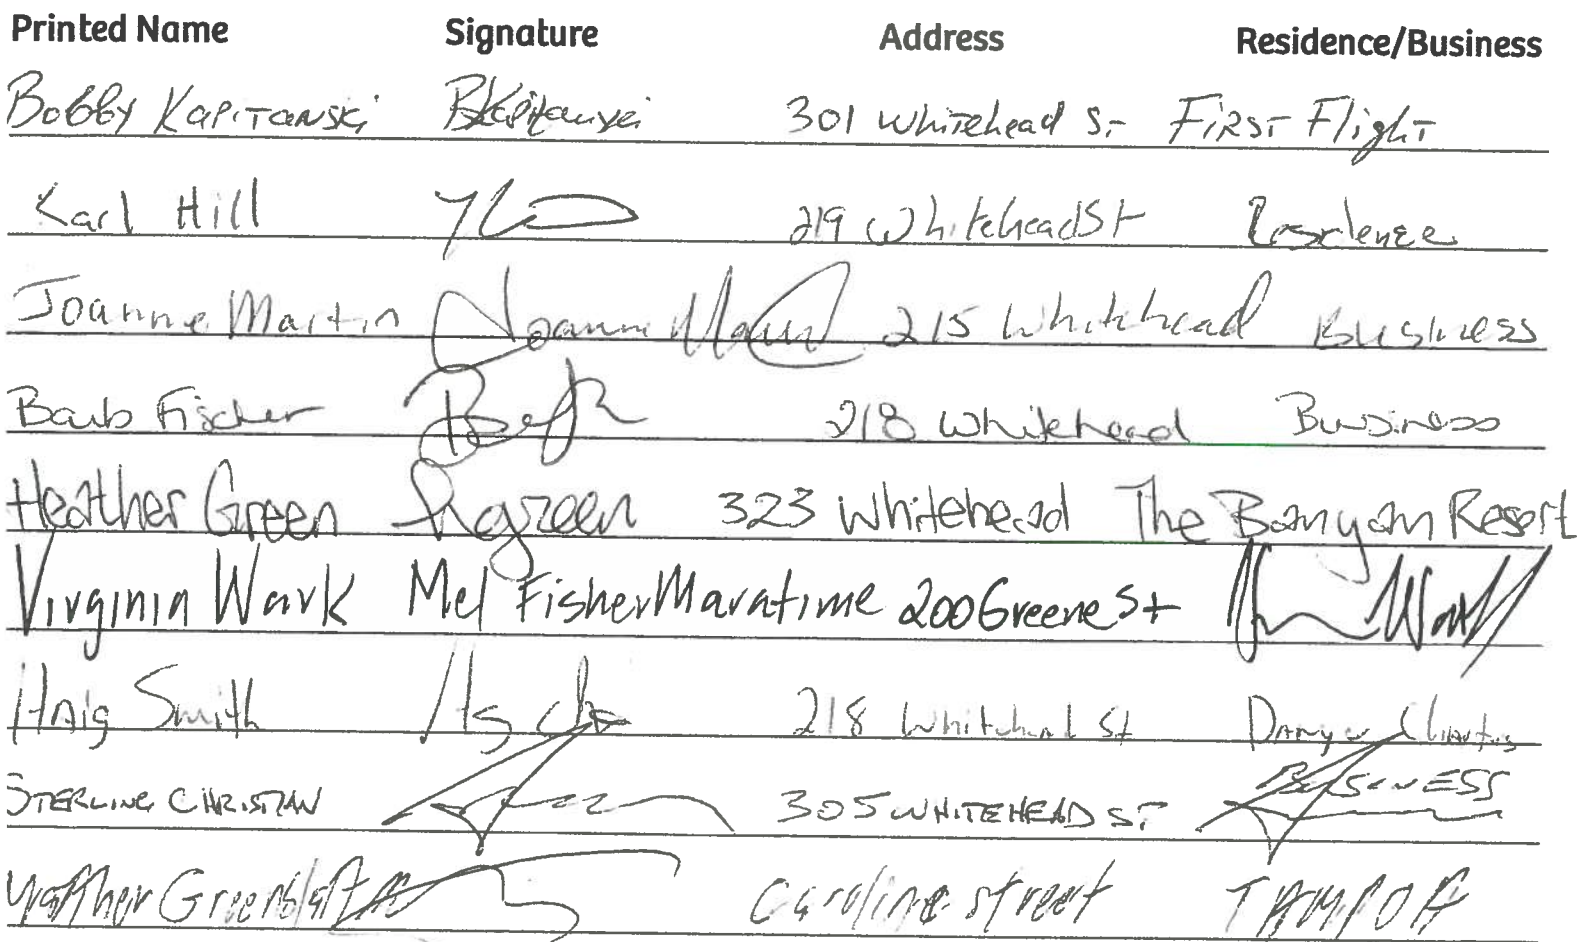 Printed Name Signature Address Residence/Business
Bobby Kapitanski BKapitanski 301 Whitehead St First Flight
Karl Hill 219 Whitehead St Residence
Joanne Martin Joanne Martin 215 Whitehead Business
Barb Fischer 218 Whitehead Business
Heather Green hgreen 323 Whitehead The Banyan Resort
Virginia Wark Mel Fisher Maratime 200 Greene St
Haig Smith 218 Whitehead St
STERLING CHRISTIAN 305 WHITEHEAD ST BUSINESS
Caroline street